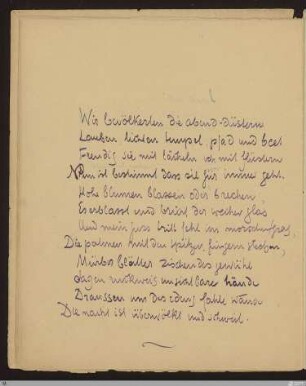 Wir bevölkerten die abend-düstern
Lauben lichten tempel pfad und beet
Freudig sie mit lächeln ich mit flüstern
Nun ist bestimmt dass sie für immer geht.
Hohe blumen blassen oder brechen
Es erblasst und bricht der weiher glas
Und mein fuss tritt fehl im morschen gras,
Die palmen mit den spitzen fingern stechen,
Mürber blätter zischendes gewühl
Jagen ruckweis unsichtbare hände
Draussen um des edens fahle wände
Die nacht ist überwölkt und schwül.